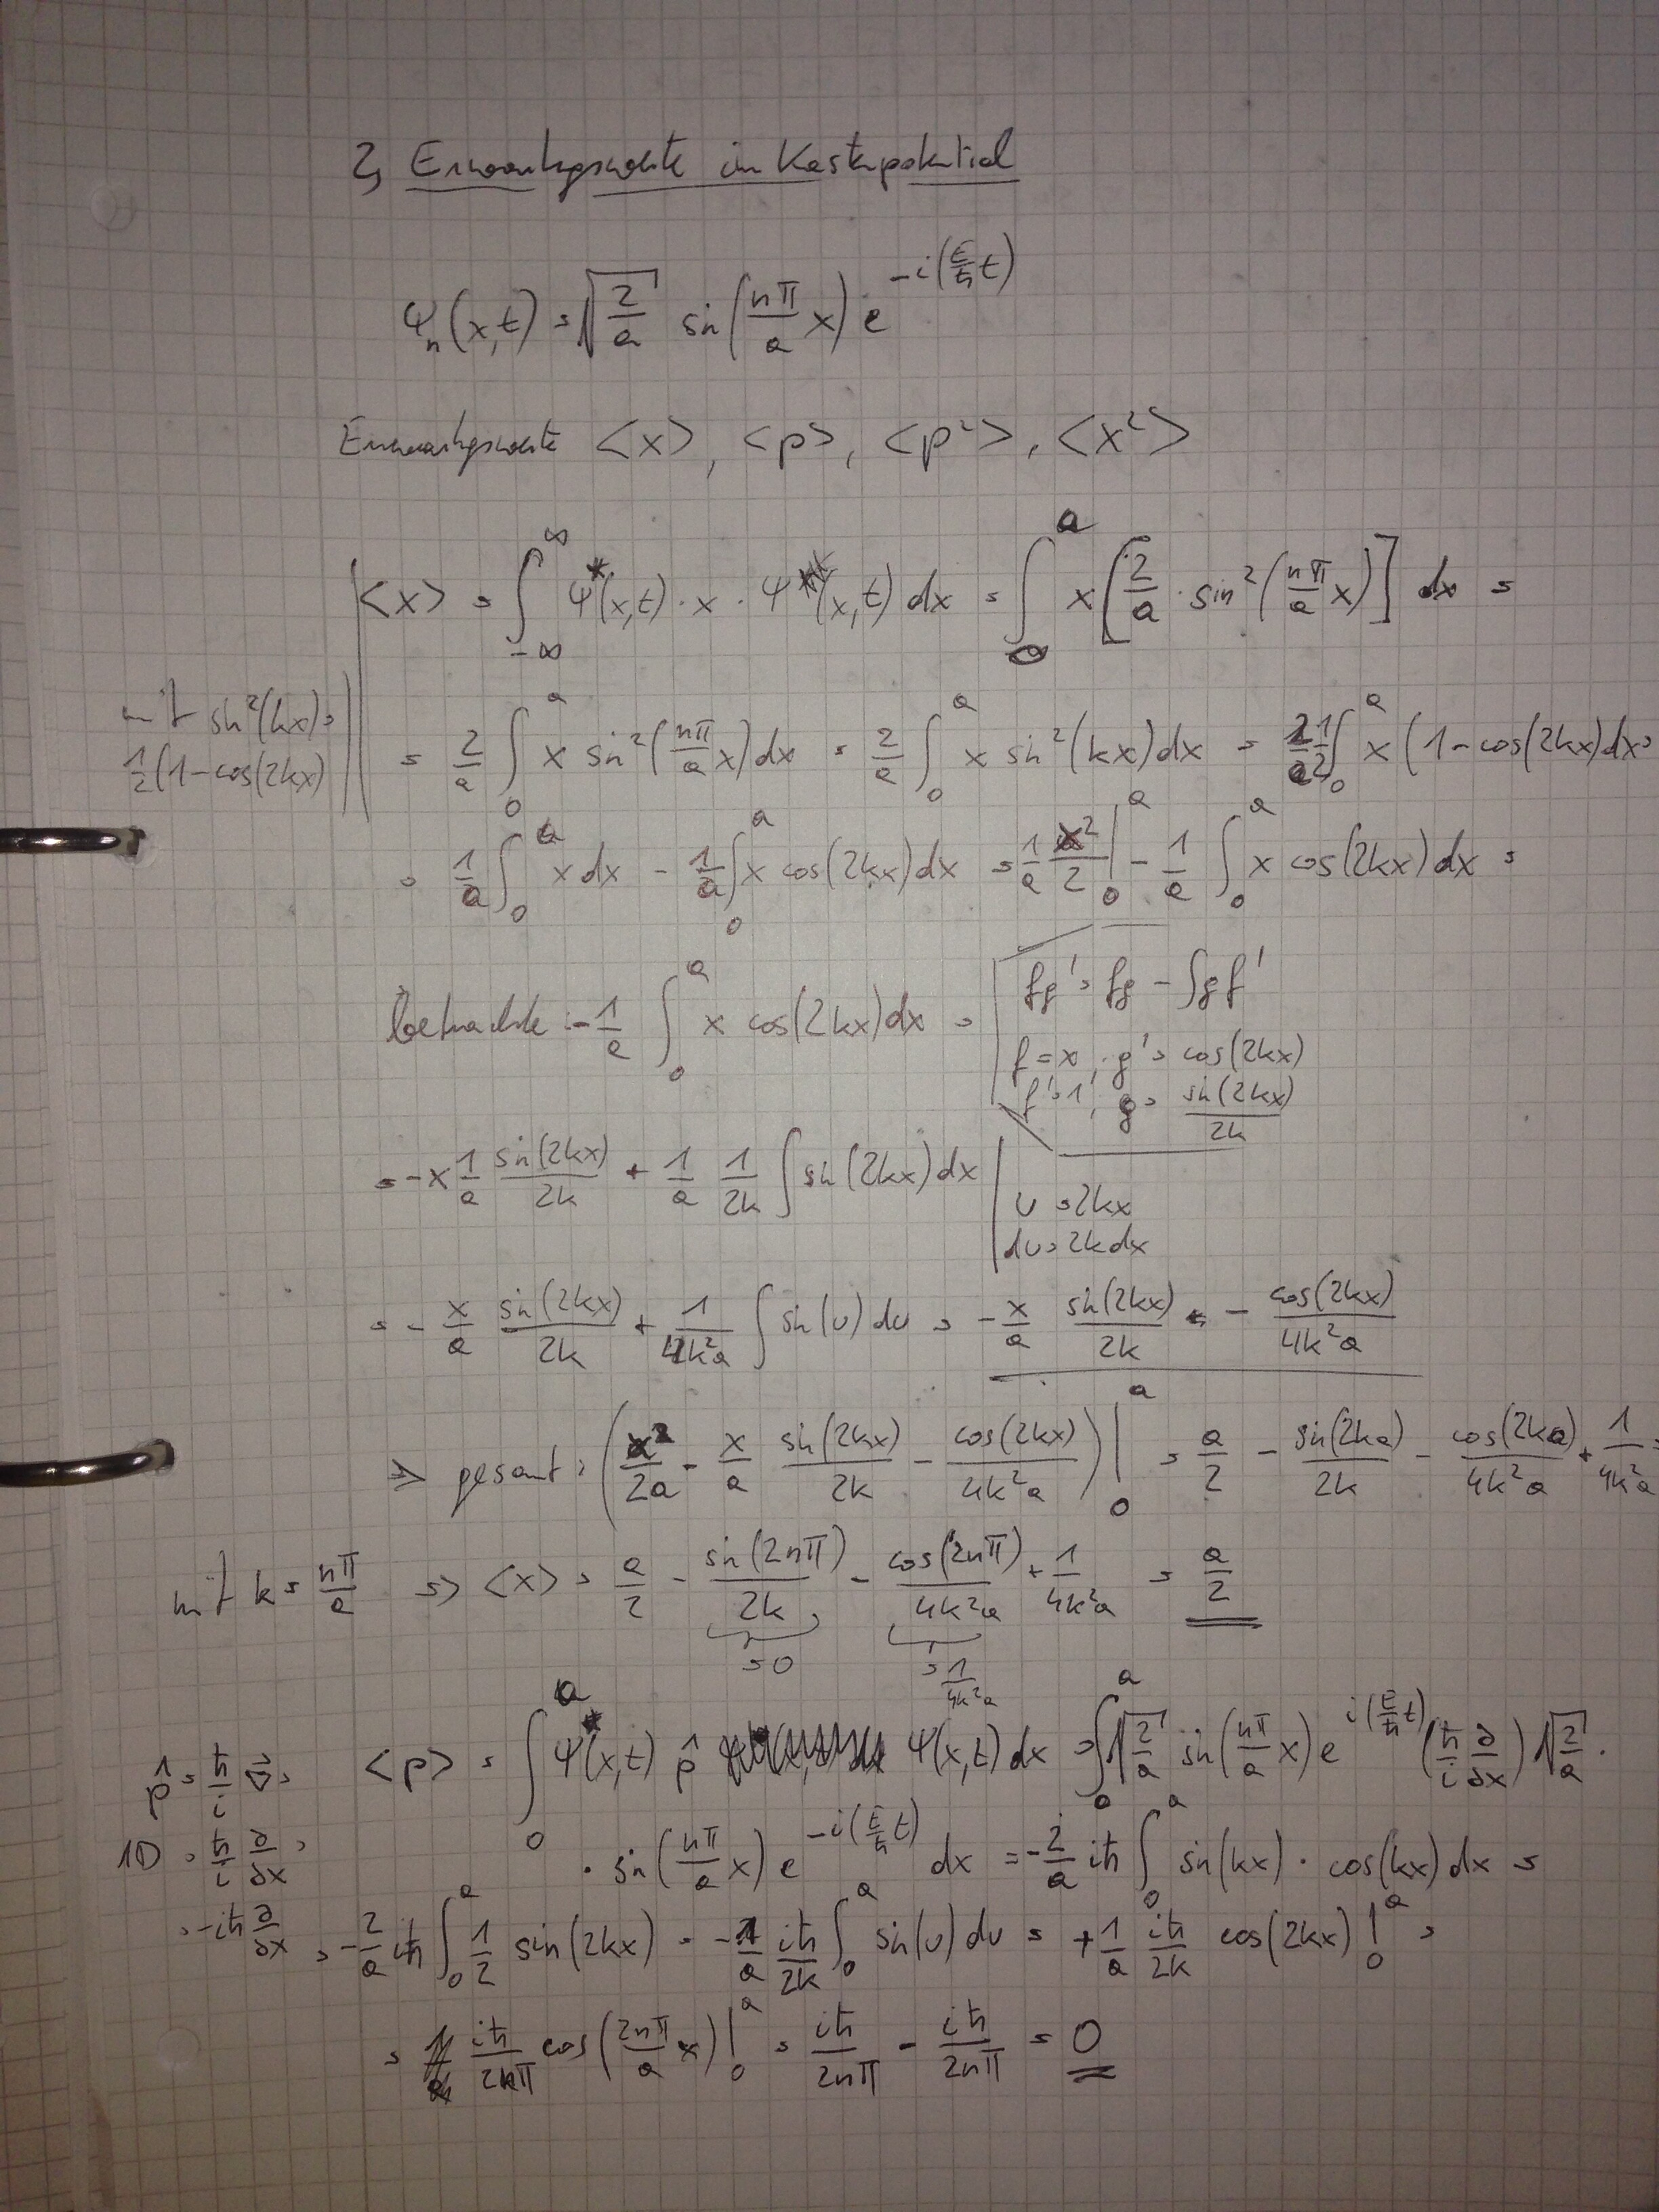 2, Erwartungswerte im Kastenpotential
Ψₙ(x,t) = √(2/a) sin(nπ/a x) e^(-i(E/ħ t))
Erwartungswerte <x>, <p>, <p²>, <x²>
<x> = ∫_{-∞}^{∞} Ψ*(x,t) · x · Ψ(x,t) dx = ∫_0^a x [2/a · sin²(nπ/a x)] dx =
mit sin²(kx) =
1/2 (1-cos(2kx)
= 2/a ∫_0^a x sin²(nπ/a x) dx = 2/a ∫_0^a x sin²(kx) dx = 2/a 1/2 ∫_0^a x (1-cos(2kx) dx =
= 1/a ∫_0^a x dx - 1/a ∫_0^a x cos(2kx) dx = 1/a x²/2 |_0^a - 1/a ∫_0^a x cos(2kx) dx =
betrachte: -1/a ∫_0^a x cos(2kx) dx =
fg' = fg - ∫gf'
f = x, g' = cos(2kx)
f' = 1, g = sin(2kx)/2k
= -x 1/a sin(2kx)/2k + 1/a 1/2k ∫ sin(2kx) dx
u = 2kx
du = 2k dx
= - x/a sin(2kx)/2k + 1/4k²a ∫ sin(u) du = - x/a sin(2kx)/2k - cos(2kx)/4k²a
=> gesamt: (x²/2a - x/a sin(2kx)/2k - cos(2kx)/4k²a) |_0^a = a/2 - sin(2ka)/2k - cos(2ka)/4k²a + 1/4k²a =
mit k = nπ/a => <x> = a/2 - sin(2nπ)/2k - cos(2nπ)/4k²a + 1/4k²a = a/2
= 0 = 1/4k²a
<p> = ∫_0^a Ψ*(x,t) p̂ Ψ(x,t) dx = ∫_0^a √(2/a) sin(nπ/a x) e^(i(E/ħ t)) (ħ/i ∂/∂x) √(2/a) ·
p̂ = ħ/i ∇⃗ =
1D = ħ/i ∂/∂x =
= -iħ ∂/∂x
· sin(nπ/a x) e^(-i(E/ħ t)) dx = -2/a iħ ∫_0^a sin(kx) · cos(kx) dx =
= -2/a iħ ∫_0^a 1/2 sin(2kx) = -1/a iħ/2k ∫_0^a sin(u) du = +1/a iħ/2k cos(2kx) |_0^a =
= iħ/2nπ cos(2nπ/a x) |_0^a = iħ/2nπ - iħ/2nπ = 0